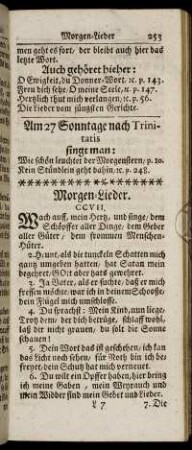 Morgen-Lieder 253
men geht es fort, der bleibt auch hier das
letzte Wort.
Auch gehöret hieher:
O Ewigkeit, du Donner-Wort, ꝛc. p. 143.
Freu dich sehr, O meine Seele, ꝛc. p. 147.
Hertzlich thut mich verlangen, ꝛc. p. 56.
Die Lieder vom jüngsten Gerichte.
Am 27 Sonntage nach Trini-
tatis
singt man:
Wie schön leuchtet der Morgenstern, p. 20.
Kein Stündlein geht dahin, ꝛc. p. 248.
Morgen-Lieder.
CCVII.
Wach auff, mein Hertz, und singe, dem
Schöpffer aller Dinge, dem Geber
aller Güter, dem frommen Menschen-
Hüter.
2. Heunt, als die tunckeln Schatten mich
gantz umgeben hatten, hat Satan mein
begehret, GOtt aber hats gewehret.
3. Ja Vater, als er suchte, daß er mich
fressen möchte, war ich in deinem Schoosse,
dein Flügel mich umschlosse.
4. Du sprachst: Mein Kind, nun liege,
Trotz dem, der dich betrüge, schlaff wohl,
laß dir nicht grauen, du solt die Sonne
schauen!
5. Dein Wort das ist geschehen, ich kan
das Licht noch sehen, für Noth bin ich be-
freyet, dein Schutz hat mich verneuet.
6. Du wilt ein Opffer haben, hier bring
ich meine Gaben, mein Weyrauch und
mein Widder sind mein Gebet und Lieder.
L 7 7. Die